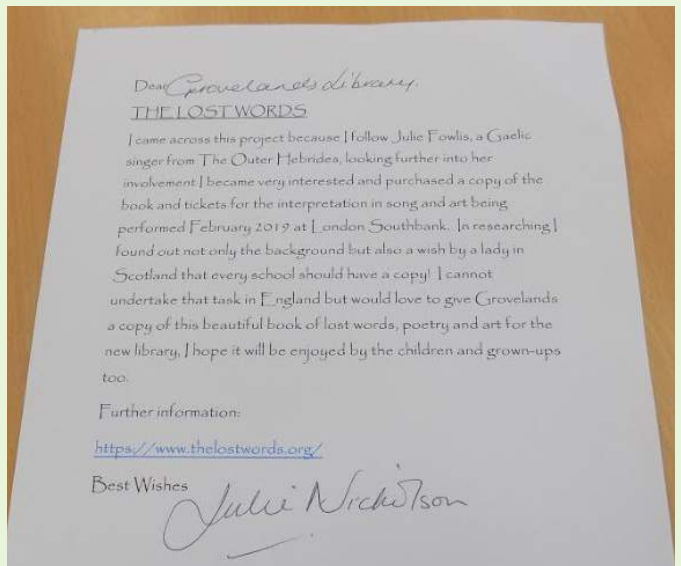 Dear Grovelands Library.
THE LOST WORDS
I came across this project because I follow Julie Fowlis, a Gaelic
singer from The Outer Hebrides, looking further into her
involvement I became very interested and purchased a copy of the
book and tickets for the interpretation in song and art being
performed February 2019 at London Southbank. In researching I
found out not only the background but also a wish by a lady in
Scotland that every school should have a copy! I cannot
undertake that task in England but would love to give Grovelands
a copy of this beautiful book of lost words, poetry and art for the
new library, I hope it will be enjoyed by the children and grown-ups
too.
Further information:
https://www.thelostwords.org/
Best Wishes
Julie Nicholson